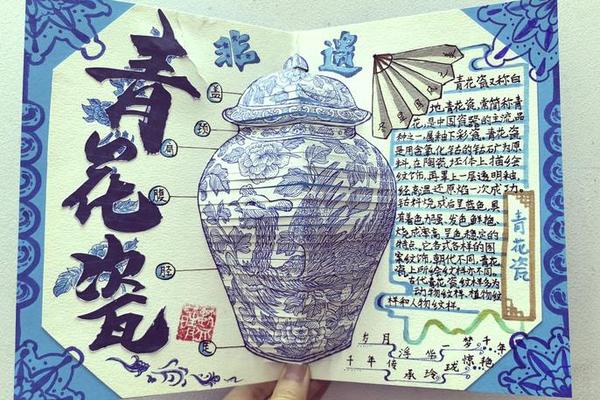 青花瓷
非遗
盖
颈
肩
腹
胫
青花瓷又称白
地青花瓷,常简称青
花,是中国瓷器的主流品
种之一,属釉下彩瓷。青花瓷
是用含氧化钴的钴矿为原
料,在陶瓷坯体上描绘
纹饰,再罩上一层透明釉,
经高温还原焰一次成功。
钴料烧成后呈蓝色,具
有着色力强、发色鲜艳、
烧成率高、呈色稳定的
特点。它各式各样的图
案纹饰,朝代不同,青花
瓷上所绘纹样亦不同。
古代青花瓷纹样多为
动物纹样、植物纹
样和人物纹样。
青花瓷
岁月浮华一梦千年
千年传承玲珑惊艳